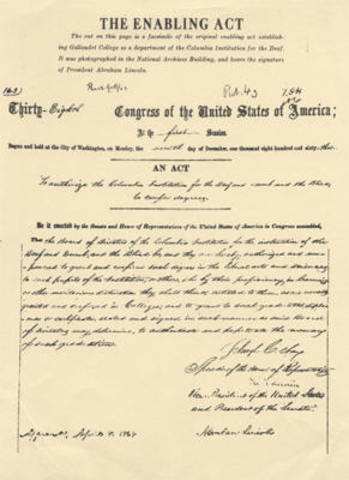 THE ENABLING ACT
The cut on this page is a facsimile of the original enabling act establish-
ing Gallaudet College as a department of the Columbia Institution for the Deaf.
It was photographed in the National Archives Building, and bears the signature
of President Abraham Lincoln.
Pub. 43
Thirty-Eighth Congress of the United States of America;
At the first Session.
Begun and held at the City of Washington, on Monday, the seventh day of December, one thousand eight hundred and sixty-three
AN ACT
To authorize the Columbia Institution for the Deaf and Dumb and the Blind
to confer degrees.
Be it enacted by the Senate and House of Representatives of the United States of America in Congress assembled,
That the Board of Directors of the Columbia Institution for the instruction of the
Deaf and Dumb, and the Blind, be, and they are hereby, authorized and em-
powered to grant and confirm such degrees in the liberal arts and sciences
to such pupils of the Institution, or others, who by their proficiency in learning
or other meritorious distinction they shall think entitled to them as are usually
granted and conferred in Colleges; and to grant to such graduates diplo-
mas or certificates, sealed and signed in such manner as said Board
of directors may determine, to authenticate and perpetuate the memory
of such graduation.
Schuyler Colfax
Speaker of the House of Representatives
H. Hamlin
Vice President of the United States
and President of the Senate.
Approved, April 8, 1864
Abraham Lincoln